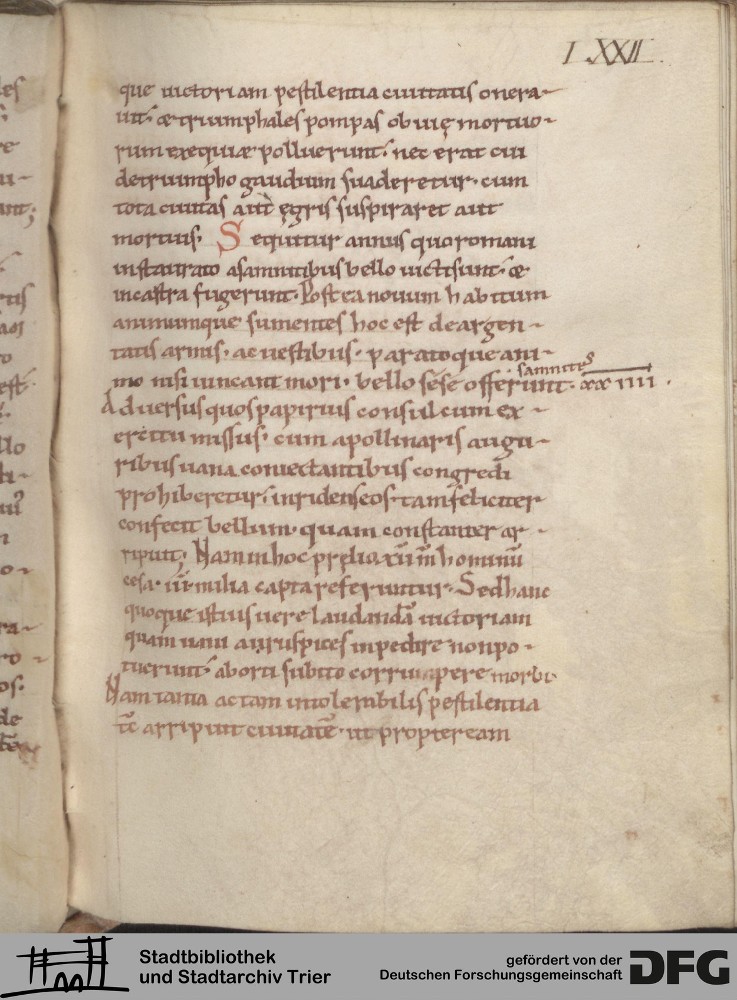 LXXII.
que uictoriam pestilentia ciuitatis onera-
uit. & triumphales pompas obuię mortuo-
rum exequiæ polluerunt. nec erat cui
detriumpho gaudium suaderetur. cum
tota ciuitas aut ęgris suspiraret aut
mortuis. Sequitur annus quo romani
instaurato asamnitibus bello uicti sunt. &
incastra fugerunt. Postea nouum habitum
animumque sumentes hoc est deargen-
tatis armis. ac uestibus. paratoque ani-
samnites
mo nisi uincant mori. bello sese offerunt. xxiiii.
Aduersus quos papirius consul cum ex-
ercitu missus. cum apollinaris augu-
ribus uana coniectantibus congredi
prohiberetur. inridens eos tam feliciter
confecit bellum. quam constanter ar-
ripuit; Nam in hoc pręlio. xii. m̄ hominū
cesa. iii. milia capta referuntur. Sed hanc
quoque istius uere laudandā uictoriam
quam uani auruspices inpedire non po-
tuerunt. aborti subito corrumpere morbi.
Nam tanta ac tam intolerabilis pestilentia
tc̄ arripuit ciuitatē. ut propter eam
Stadtbibliothek
und Stadtarchiv Trier
gefördert von der
Deutschen Forschungsgemeinschaft
DFG